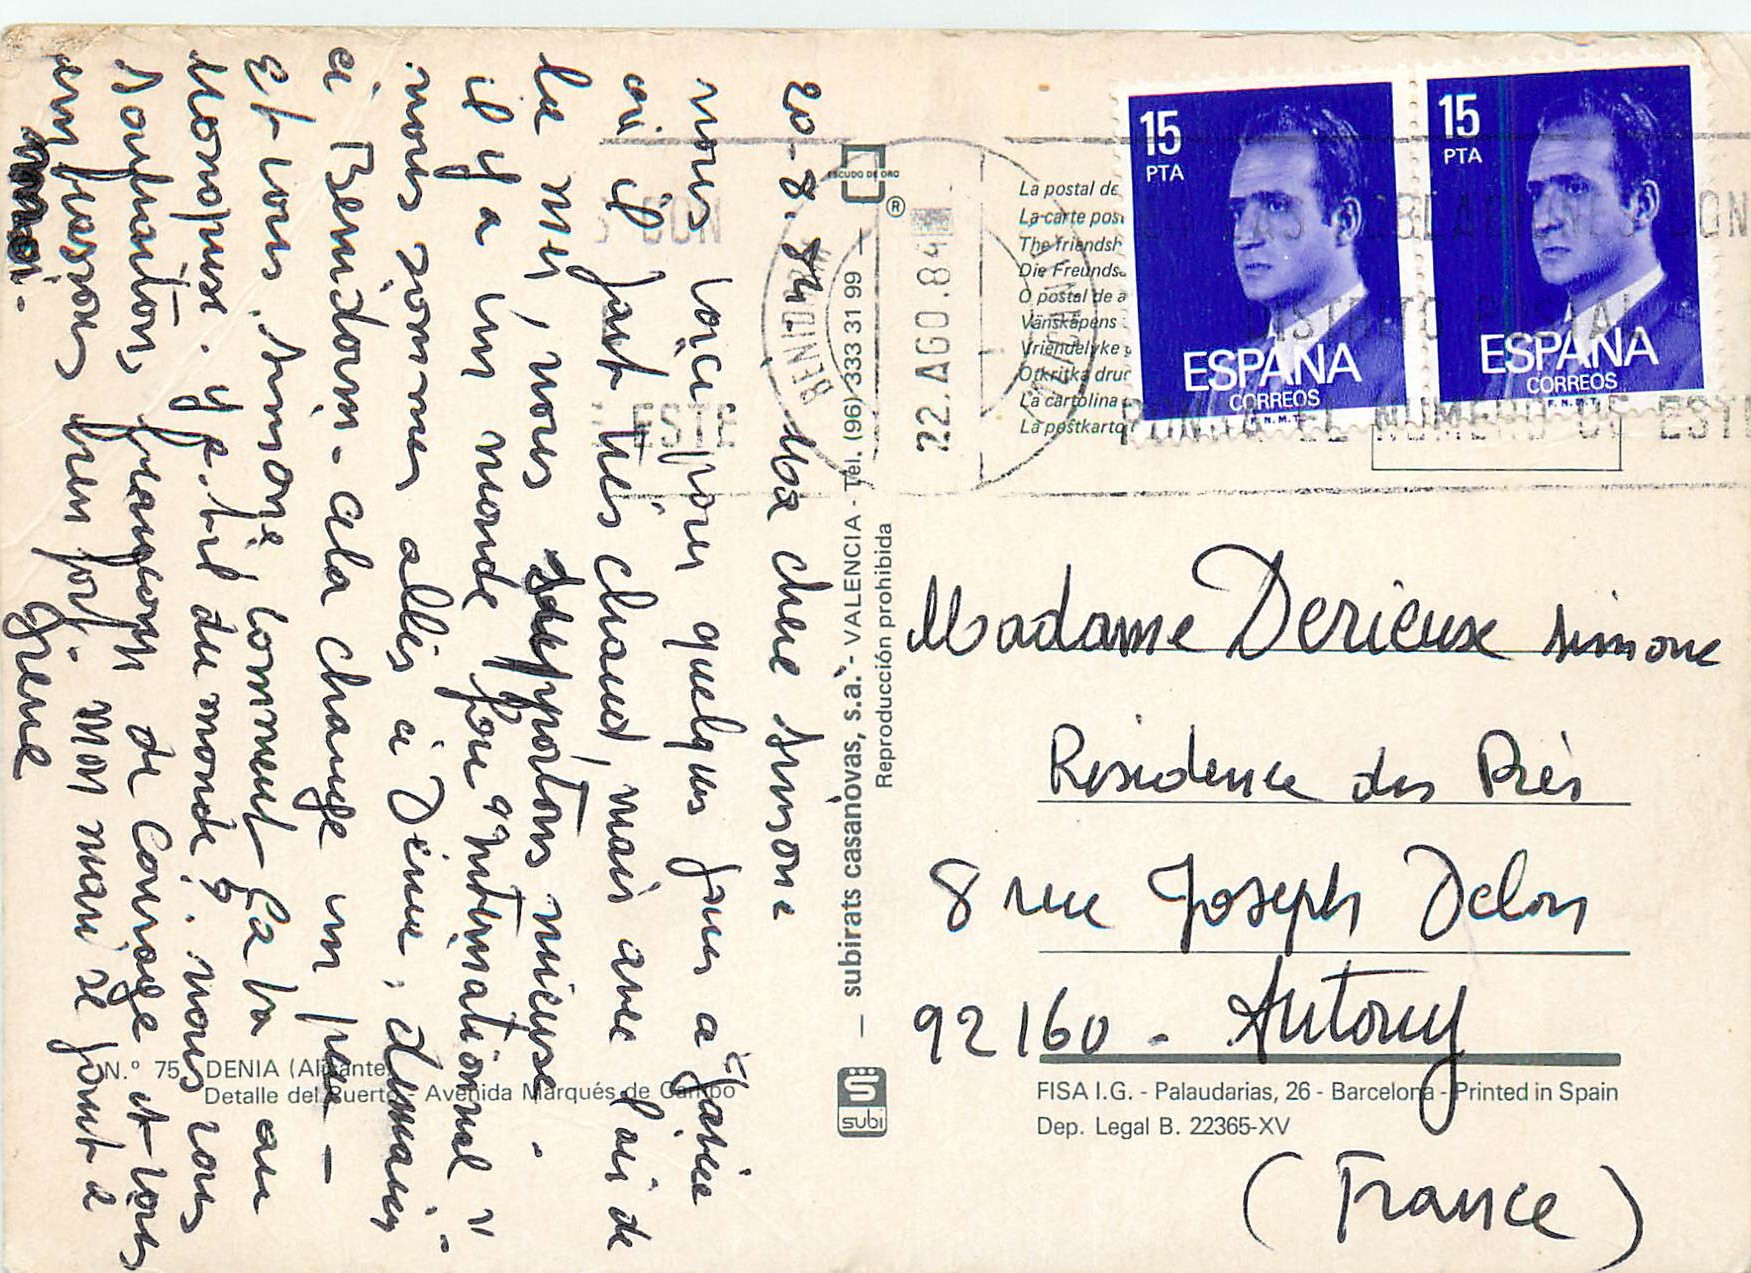 20-8.84 Ma chere Simone
nous voici pour quelques jours a Javea
où il fait très chaud, mais avec l'air de
la mer, nous supportons mieux.
il y a un monde fou "International"
nous sommes allés à Denia, demain
à Benidorm - cela change un peu -
Et vous, Simone comment ça va au
Monoprix. y a-t-il du monde ?. nous vous
souhaitons beaucoup de courage et vous
embrassons bien fort. mon mari se joint à
moi.
15
PTA
ESPAÑA
CORREOS
F.N.M.T.
15
PTA
ESPAÑA
CORREOS
F.N.M.T.
BENIDORM
22.AGO.84
DISTRITO POSTAL
PONGA EL NUMERO DE ESTE
ESTE
La postal de
La carte pos
The friendsh
Die Freunds
O postal de a
Vänskapens
Vriendelyke
Otkritka dru
La cartolina
La postkarto
ESCUDO DE ORO
®
— subirats casanovas, s.a. - VALENCIA - Tel. (96) 333 31 99 —
Reproducción prohibida
subi
Madame Derieux Simone
Résidence des Près
8 rue Joseph Delon
92160 - Antony
(France)
N.º 75. DENIA (Alicante)
Detalle del Puerto - Avenida Marqués de Campo
FISA I.G. - Palaudarias, 26 - Barcelona - Printed in Spain
Dep. Legal B. 22365-XV